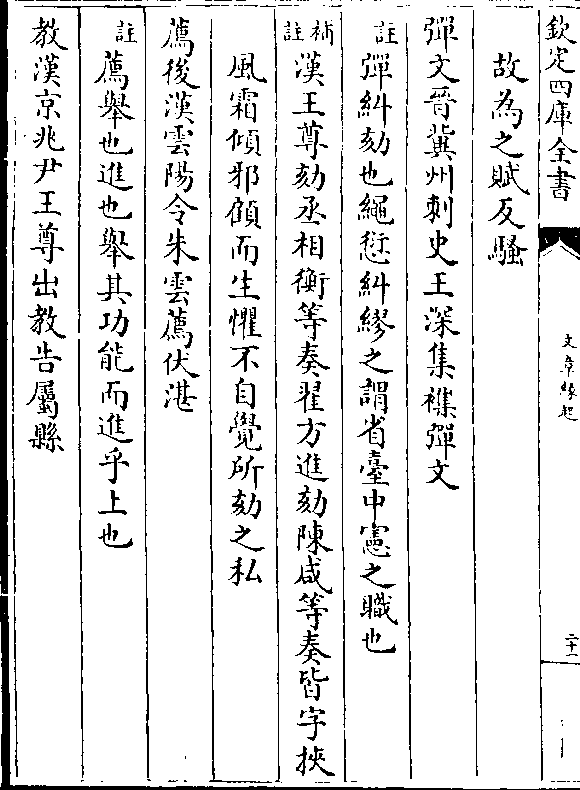 欽定四庫全書
文章緣起
二十一
故為之賦反騷
彈文晉冀州刺史王深集襍彈文
註彈糾劾也繩愆糾繆之謂省臺中憲之職也
補註漢王尊劾丞相衡等奏翟方進劾陳咸等奏皆字挾
風霜傾邪顧而生懼不自覺所劾之私
薦後漢雲陽令朱雲薦伏湛
註薦舉也進也舉其功能而進乎上也
教漢京兆尹王尊出教告屬縣